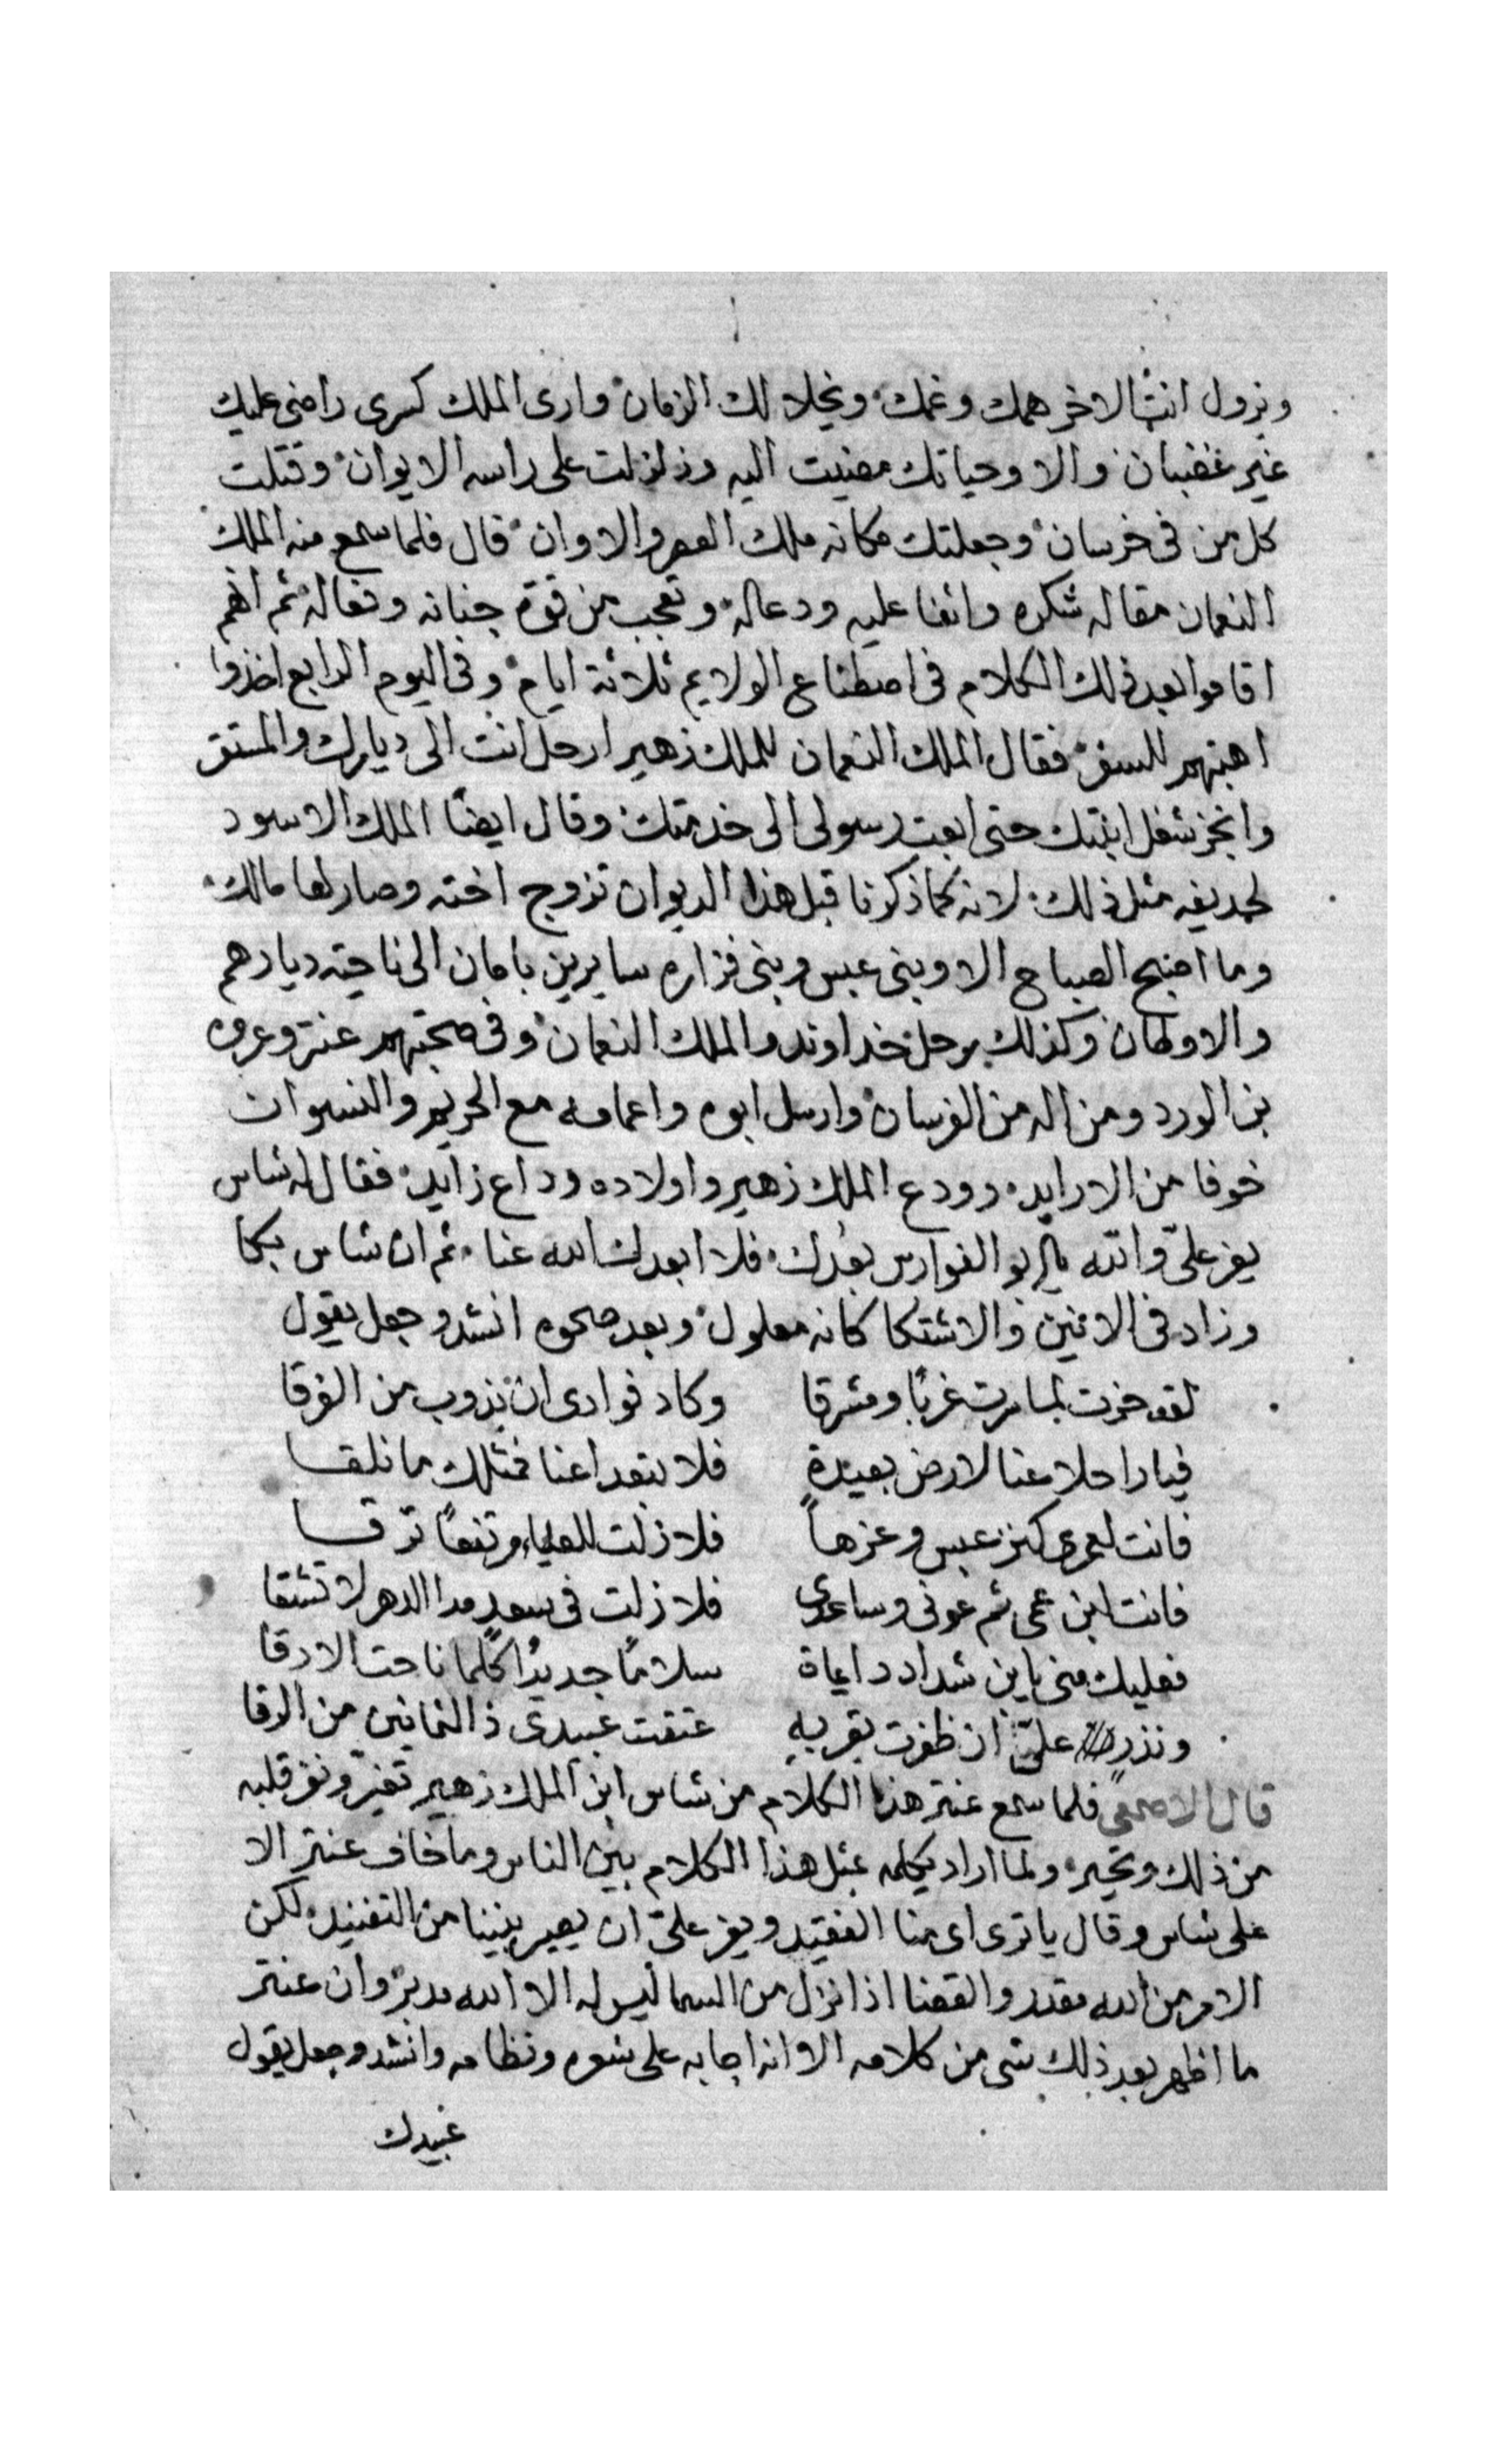 ونزول انت الاخر همك وغمك ونجلا لك الزمان وارى الملك كسرى راضى عليك
غير غضبان والا وحياتك مضيت اليه وزلزلت على راسه الايوان وقتلت
كل من فى خرسان وجعلتك مكانه ملك العصر والاوان قال فلما سمع منه الملك
النعمان مقاله شكره واثنا عليه ودعاله وتعجب من قوة جنانه وفعاله ثم انهم
اقاموا بعد ذلك الكلام فى اصطناع الولايم ثلاثة ايام وفى اليوم الرابع اخذوا
اهبتهم للسفر فقال الملك النعمان للملك زهير ارحل انت الى ديارك والمستقر
وانجز شغل ابنتك حتى ابعت رسولى الى خدمتك وقال ايضًا الملك الاسود
لحديفه مثل ذلك لانه كما ذكرنا قبل هذا الديوان تزوج اخته وصار لها مالك
وما اصبح الصباح الا وبنى عبس وبنى فزاره سايرين بامان الى ناحية ديارهم
والاوطان وكذلك برحل خداوند والملك النعمان وفى صحبتهم عنتر وعروه
بن الورد ومن اله من الفرسان وارسل ابوه واعمامه مع الحريم والنسوان
خوفا من الارايد وودع الملك زهير واولاده وداع زايد فقال له شاس
يعز علىّ والله يا ابو الفوارس بعدك فلا ابعدك الله عنا ثم ان شاس بكا
وزاد فى الانين والاشتكا كانه معلول وبعد صحوه انشد وجعل يقول
لقد حزت لما سرت غربًا ومشرقا وكاد فوادى ان يذوب من الفرقا
فيا راحلا عنا لارض بعيدة فلا تبعد اعنا فمثلك ما نلقا
فانت لعمرى كنز عبس وعزهاً فلا زلت للعلياء وتفعًا ترقا
فانت ابن عمى ثم عونى وساعدى فلا زلت فى سعد مدا الدهر لا تشقا
فعليك منى يا بن شداد داياة سلامًا جديدًا كلما ناحت الا رقا
ونذر علىّ ان ظفرت بقربه عتقت عبيدى ذا الثمانين من الرقا
قال الاصمعى فلما سمع عنتر هذا الكلام من شاس ابن الملك زهير تغير ونفر قلبه
من ذلك وتحير ولما اراد يكلمه بمثل هذا الكلام بين الناس وما خاف عنتر الا
على شاس وقال يا ترى اى منا الفقيد ويعز علىّ ان يصير بيننا من التفنيد لكن
الامر من الله مقدر والقضا اذا نزل من السما ليس له الا الله مدبر وان عنتر
ما اظهر بعد ذلك شى من كلامه الا انه اجابه على شعره ونظامه وانشد وجعل يقول
عبيدك